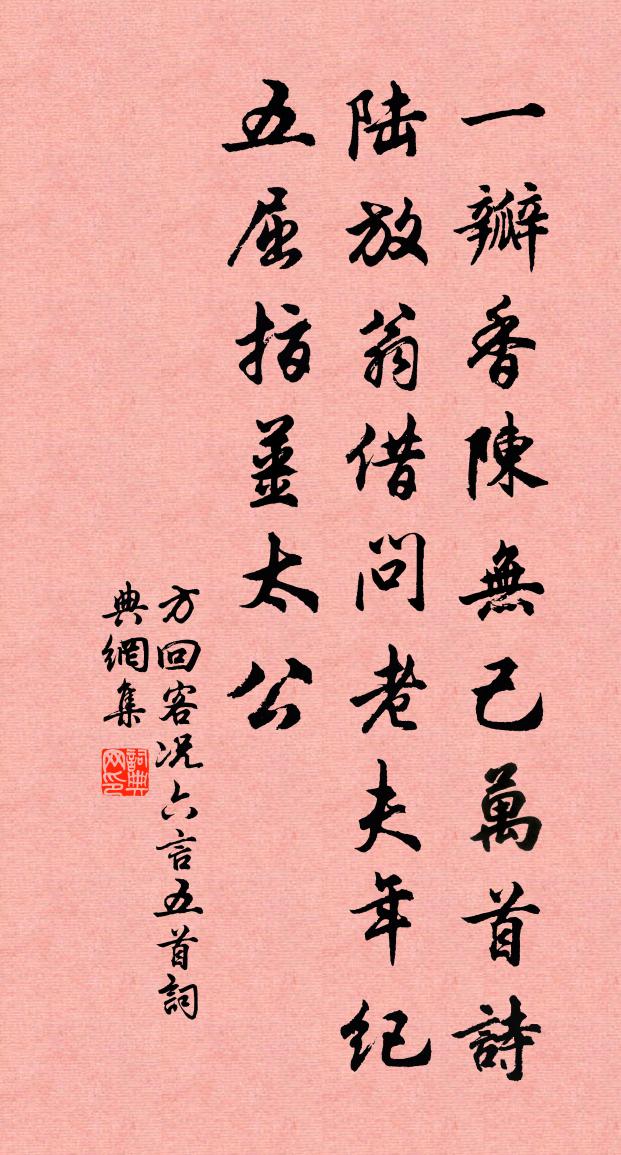 一瓣香陳無己萬首詩
陸放翁借問老夫年紀
五屈指薑太公
方回客况六言五首詞
典網集
詞典
网印